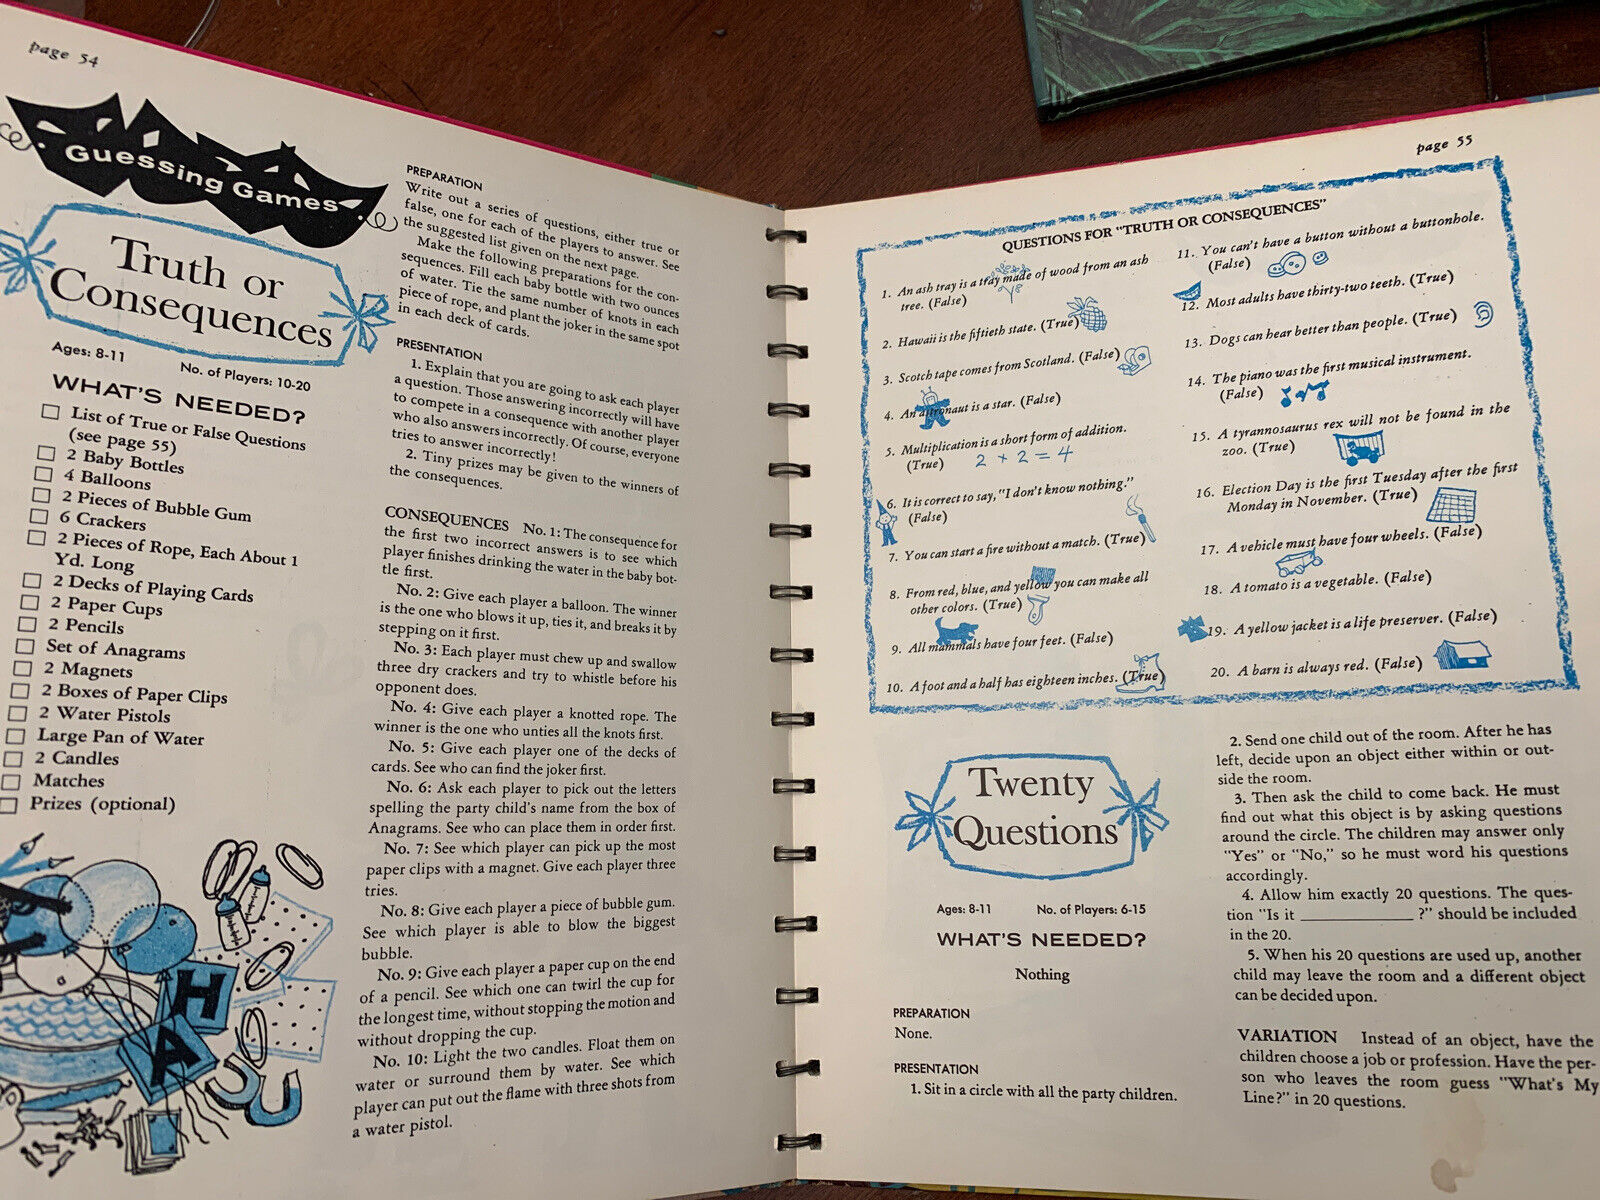 page 54
Guessing Games
Truth or
Consequences
Ages: 8-11
No. of Players: 10-20
WHAT'S NEEDED?
List of True or False Questions
(see page 55)
2 Baby Bottles
4 Balloons
2 Pieces of Bubble Gum
6 Crackers
2 Pieces of Rope, Each About 1
Yd. Long
2 Decks of Playing Cards
2 Paper Cups
2 Pencils
Set of Anagrams
2 Magnets
2 Boxes of Paper Clips
2 Water Pistols
Large Pan of Water
2 Candles
Matches
Prizes (optional)
H
A
PREPARATION
Write out a series of questions, either true or
false, one for each of the players to answer. See
the suggested list given on the next page.
Make the following preparations for the con-
sequences. Fill each baby bottle with two ounces
of water. Tie the same number of knots in each
piece of rope, and plant the joker in the same spot
in each deck of cards.
PRESENTATION
1. Explain that you are going to ask each player
a question. Those answering incorrectly will have
to compete in a consequence with another player
who also answers incorrectly. Of course, everyone
tries to answer incorrectly!
2. Tiny prizes may be given to the winners of
the consequences.
CONSEQUENCES No. 1: The consequence for
the first two incorrect answers is to see which
player finishes drinking the water in the baby bot-
tle first.
No. 2: Give each player a balloon. The winner
is the one who blows it up, ties it, and breaks it by
stepping on it first.
No. 3: Each player must chew up and swallow
three dry crackers and try to whistle before his
opponent does.
No. 4: Give each player a knotted rope. The
winner is the one who unties all the knots first.
No. 5: Give each player one of the decks of
cards. See who can find the joker first.
No. 6: Ask each player to pick out the letters
spelling the party child's name from the box of
Anagrams. See who can place them in order first.
No. 7: See which player can pick up the most
paper clips with a magnet. Give each player three
tries.
No. 8: Give each player a piece of bubble gum.
See which player is able to blow the biggest
bubble.
No. 9: Give each player a paper cup on the end
of a pencil. See which one can twirl the cup for
the longest time, without stopping the motion and
without dropping the cup.
No. 10: Light the two candles. Float them on
water or surround them by water. See which
player can put out the flame with three shots from
a water pistol.
page 55
QUESTIONS FOR "TRUTH OR CONSEQUENCES"
1. An ash tray is a tray made of wood from an ash
tree. (False)
2. Hawaii is the fiftieth state. (True)
3. Scotch tape comes from Scotland. (False)
4. An astronaut is a star. (False)
5. Multiplication is a short form of addition.
(True) 2 + 2 = 4
6. It is correct to say, "I don't know nothing."
(False)
7. You can start a fire without a match. (True)
8. From red, blue, and yellow you can make all
other colors. (True)
9. All mammals have four feet. (False)
10. A foot and a half has eighteen inches. (True)
11. You can't have a button without a buttonhole.
(False)
12. Most adults have thirty-two teeth. (True)
13. Dogs can hear better than people. (True)
14. The piano was the first musical instrument.
(False)
15. A tyrannosaurus rex will not be found in the
zoo. (True)
16. Election Day is the first Tuesday after the first
Monday in November. (True)
17. A vehicle must have four wheels. (False)
18. A tomato is a vegetable. (False)
19. A yellow jacket is a life preserver. (False)
20. A barn is always red. (False)
Twenty
Questions
Ages: 8-11
No. of Players: 6-15
WHAT'S NEEDED?
Nothing
PREPARATION
None.
PRESENTATION
1. Sit in a circle with all the party children.
2. Send one child out of the room. After he has
left, decide upon an object either within or out-
side the room.
3. Then ask the child to come back. He must
find out what this object is by asking questions
around the circle. The children may answer only
"Yes" or "No," so he must word his questions
accordingly.
4. Allow him exactly 20 questions. The ques-
tion "Is it ____________ ?" should be included
in the 20.
5. When his 20 questions are used up, another
child may leave the room and a different object
can be decided upon.
VARIATION Instead of an object, have the
children choose a job or profession. Have the per-
son who leaves the room guess "What's My
Line?" in 20 questions.